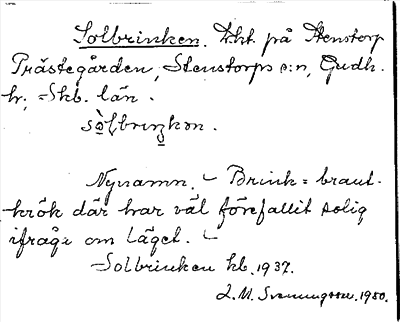 Solbrinken. Lht. på Stenstorp
Prästegården, Stenstorps s:n, Gudh.
hr; Skb. län.
sòlbriŋkən.
Nynamn. Brink = brant.
krök där har väl förefallit solig
ifråga om läget.
Solbrinken kb. 1937.
L. M. Svenungsson. 1950.